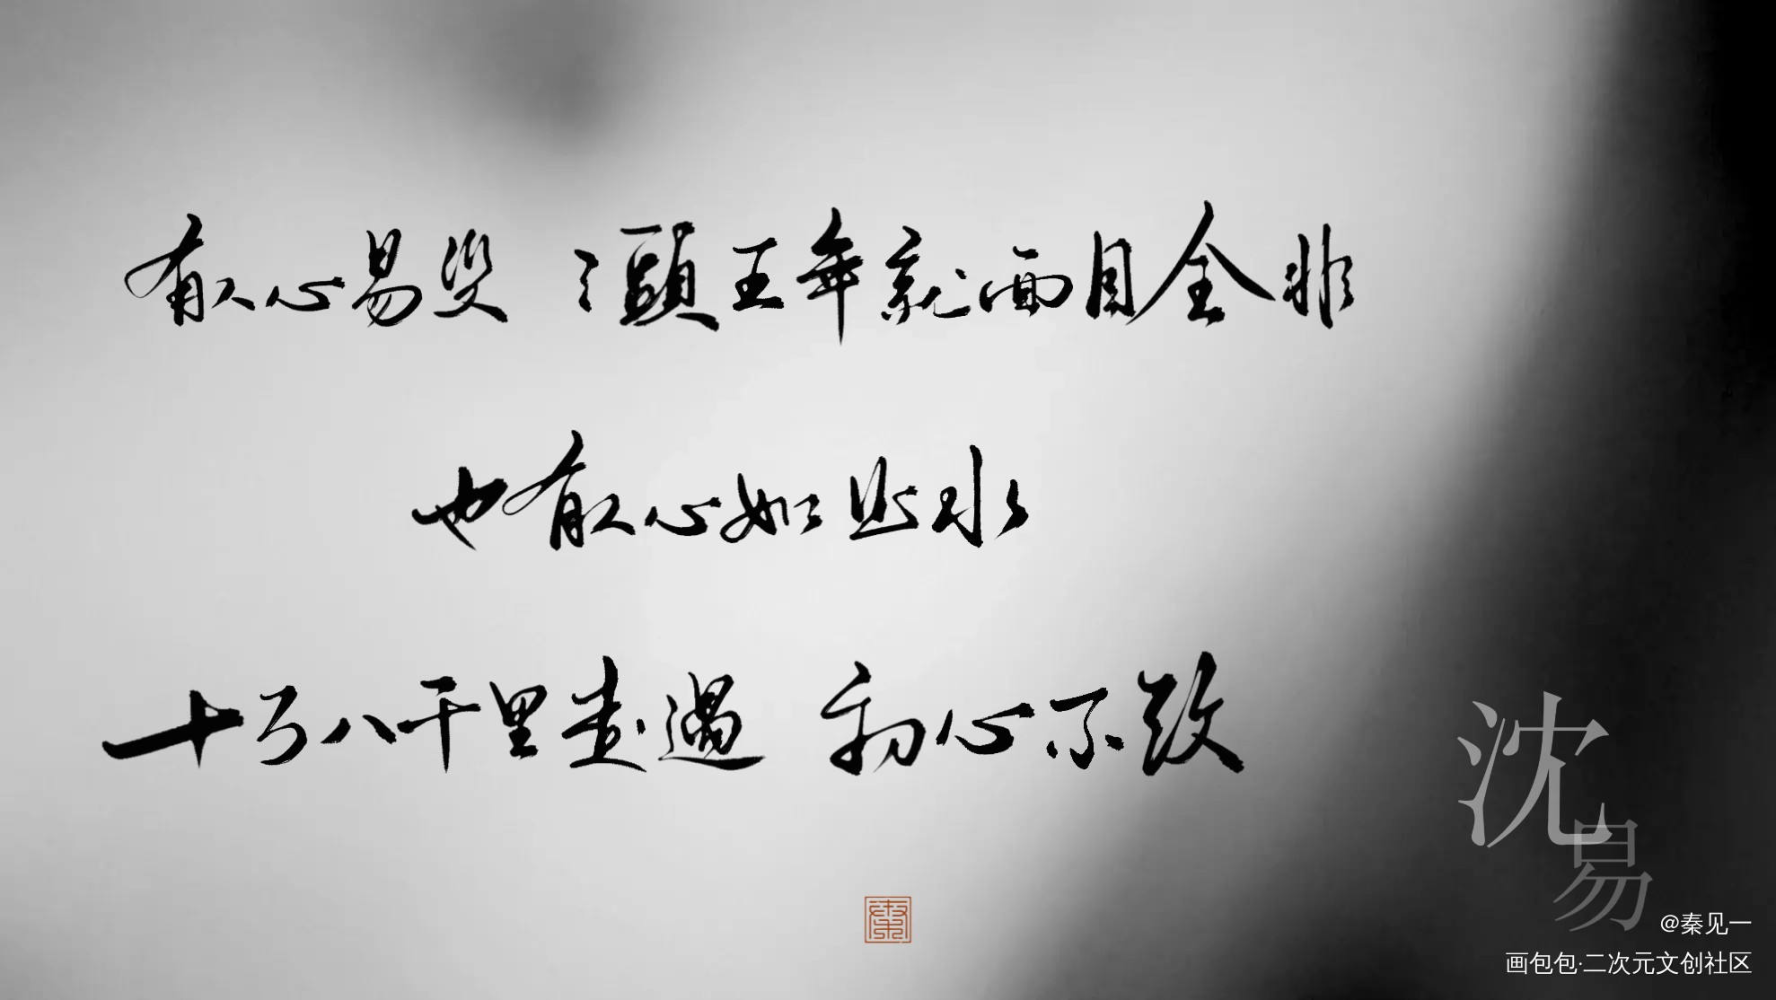 有人心易变 三头五年就面目全非
也有人心如止水
十万八千里走过 初心不改
沈易
@秦见一
画包包·二次元文创社区